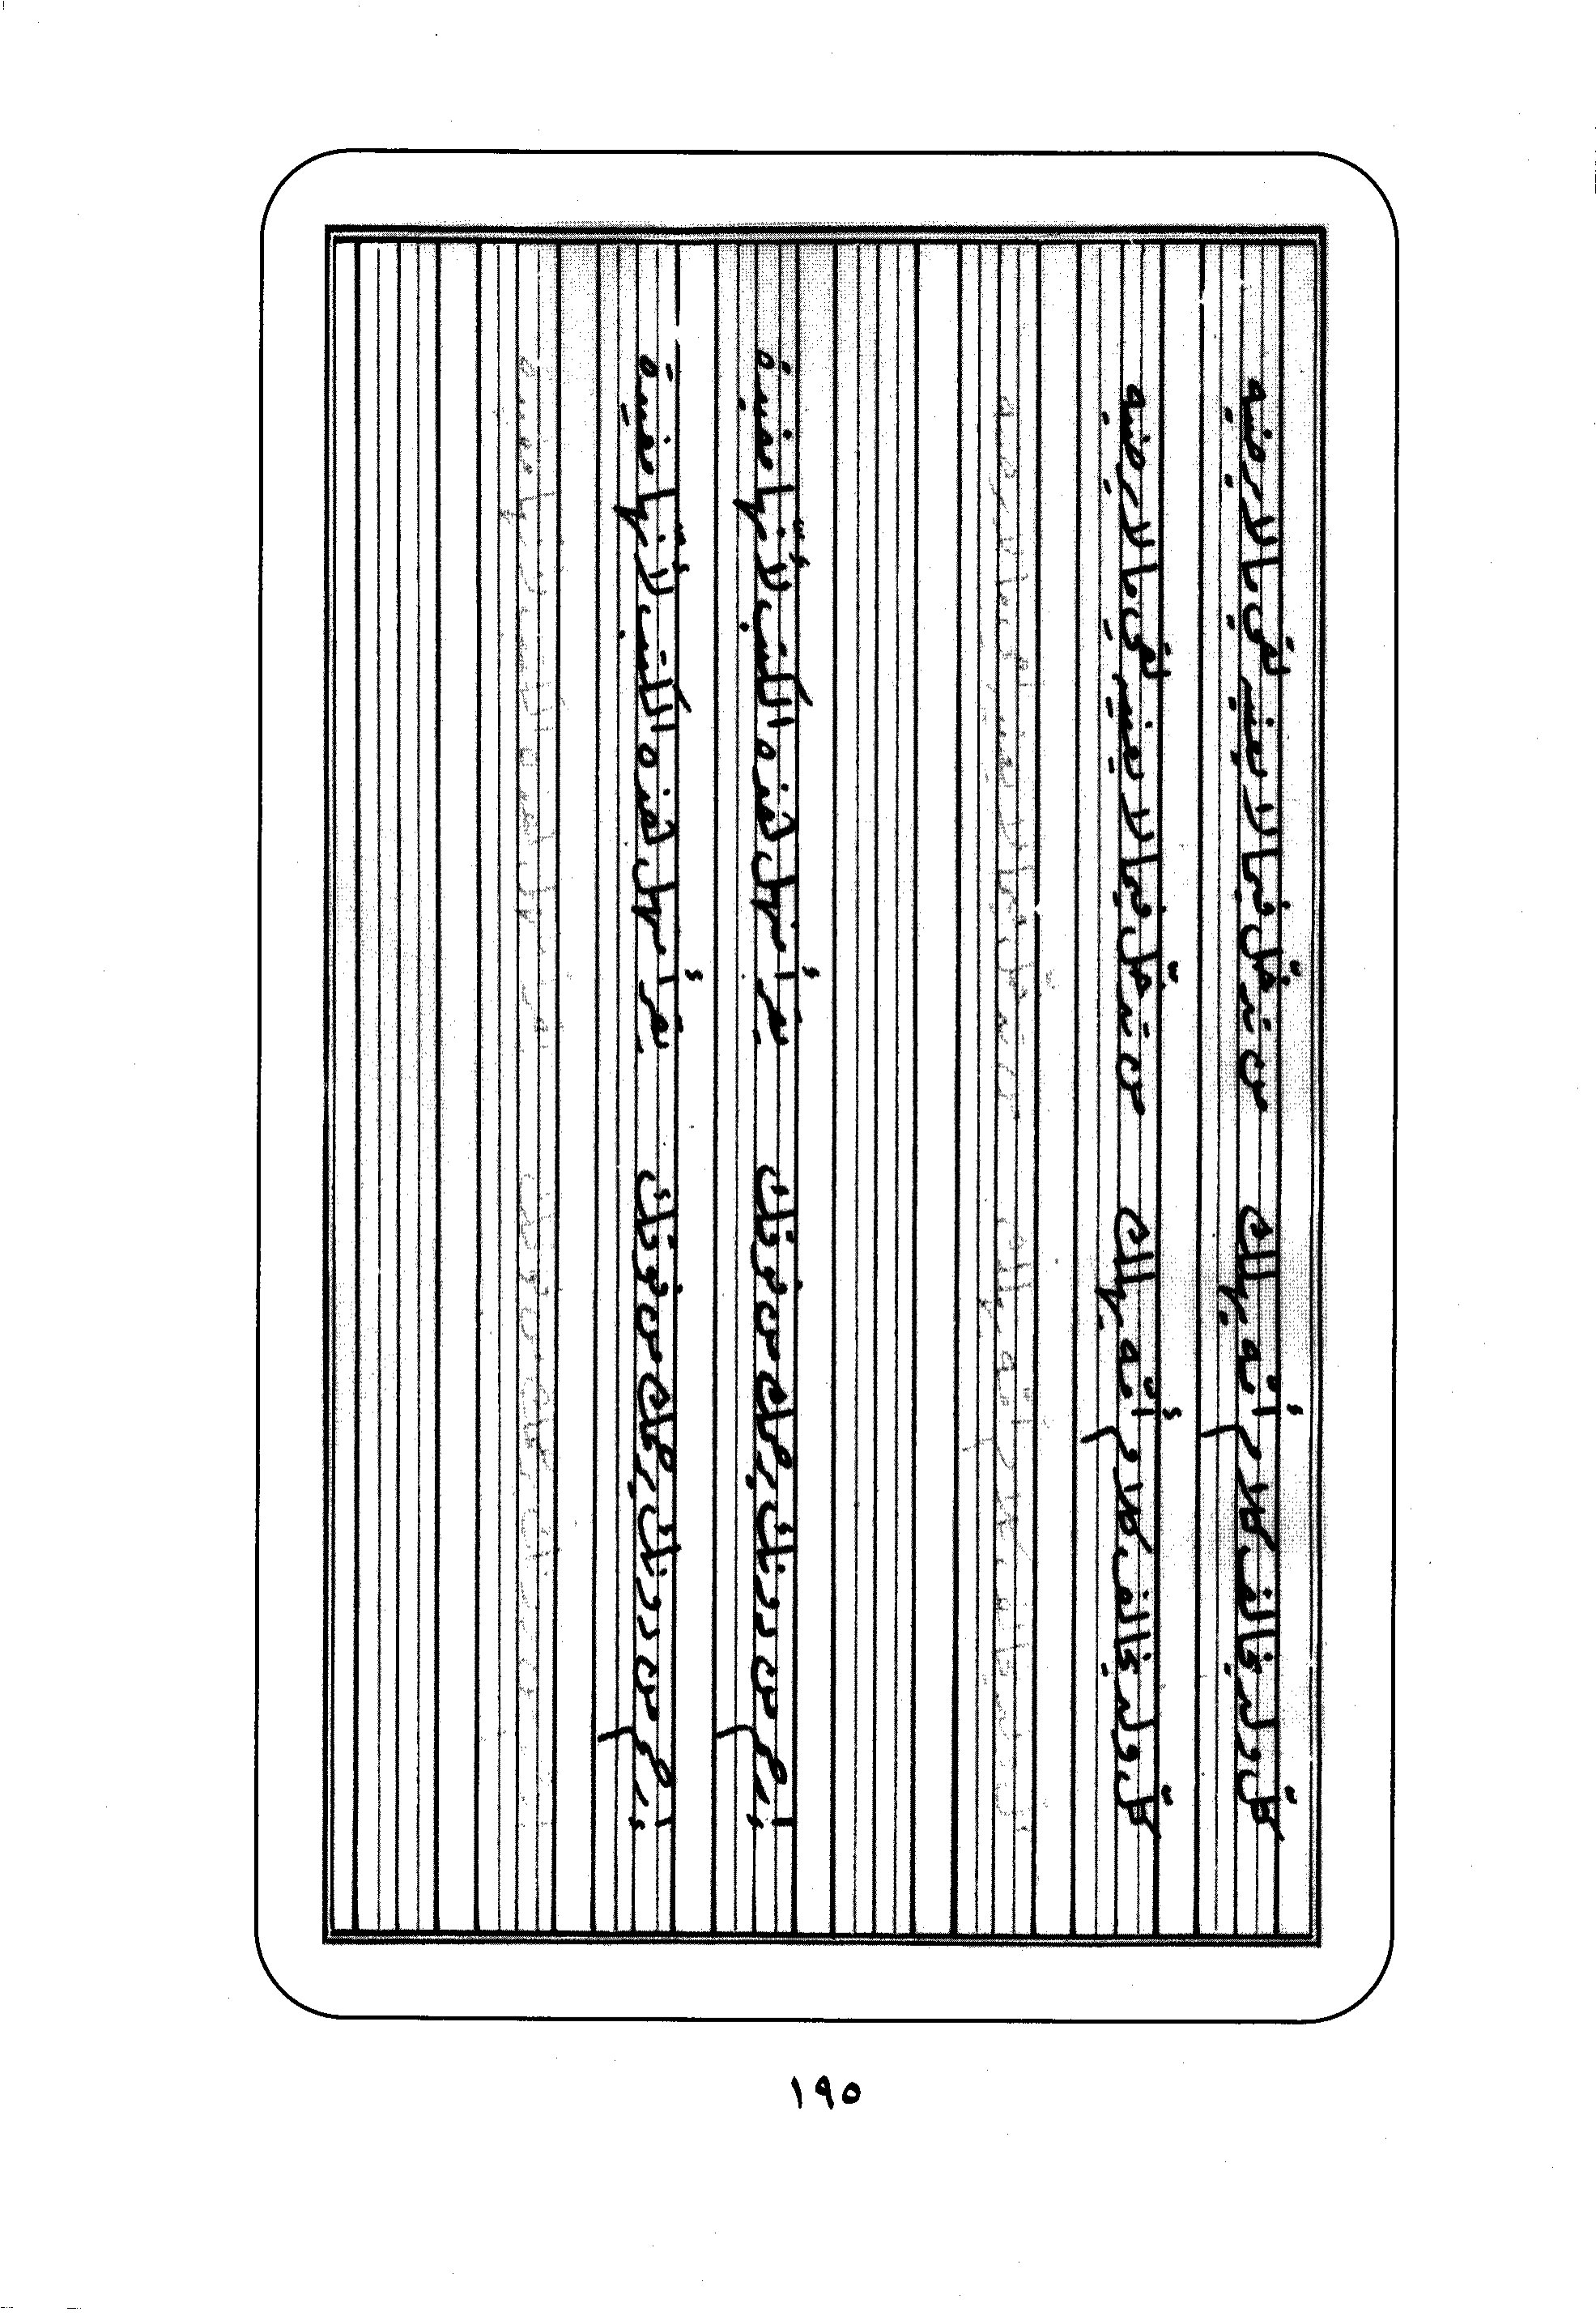 كلّ ولد يخالف كلام أمّه يهلك من تدخّل فيما لا يعنيه لقي ما لا يرضيه
كلّ ولد يخالف كلام أمّه يهلك من تدخّل فيما لا يعنيه لقي ما لا يرضيه
إرحم من دونك يرحمك من فوقك يقرأ سهل هذه الكتب لأنّها مفيدة
إرحم من دونك يرحمك من فوقك يقرأ سهل هذه الكتب لأنّها مفيدة
١٩٥